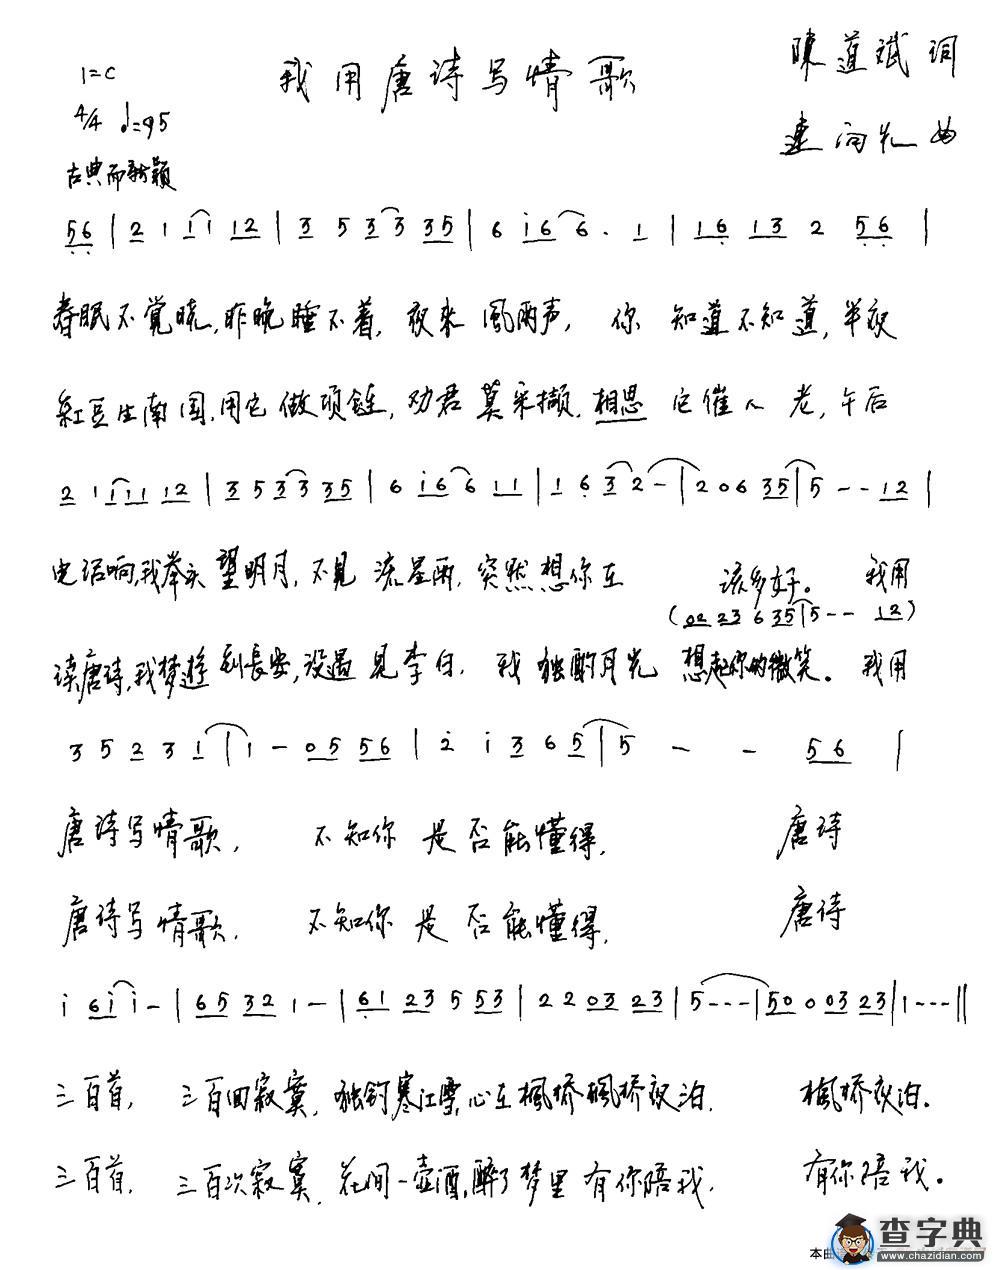 我用唐诗写情歌
1=C
4/4 ♩=95
古典而新颖
陳道斌 词
曲
56 | 2 1 1 1 12 | 3 5 3 3 35 | 6 i6 6· 1 | 16 13 2 56 |
春眠不覚晓,昨晚睡不着,夜来風雨声,你 知道不知道,半夜
紅豆生南国,用它做项链,劝君莫采撷,相思 它催人老,午后
2 1 111 12 | 3 5 3 3 35 | 6 i6 6 11 | 1 6 3 2 - | 2 0 6 35 | 5 - - 12 |
电话响,我举头望明月,不見流星雨,突然想你在 该多好。 我用
(02 23 6 35 | 5 - - 12)
读唐诗,我梦遊到長安,没遇見李白,我独酌月光 想起你的微笑。我用
3 5 2 3 1 | 1 - 05 56 | 2 i 3 6 5 | 5 - - 56 |
唐诗写情歌, 不知你是否能懂得, 唐诗
唐诗写情歌, 不知你是否能懂得, 唐诗
i 6i i - | 65 32 1 - | 61 23 5 53 | 2 2 03 23 | 5 - - - | 50 0 03 23 | 1 - - - ||
三百首, 三百回寂寞,独钓寒江雪,心在楓桥楓桥夜泊, 楓桥夜泊。
三百首, 三百次寂寞,花间一壶酒,醉了梦里有你陪我, 有你陪我。
本曲
查字典
www.chazidian.com